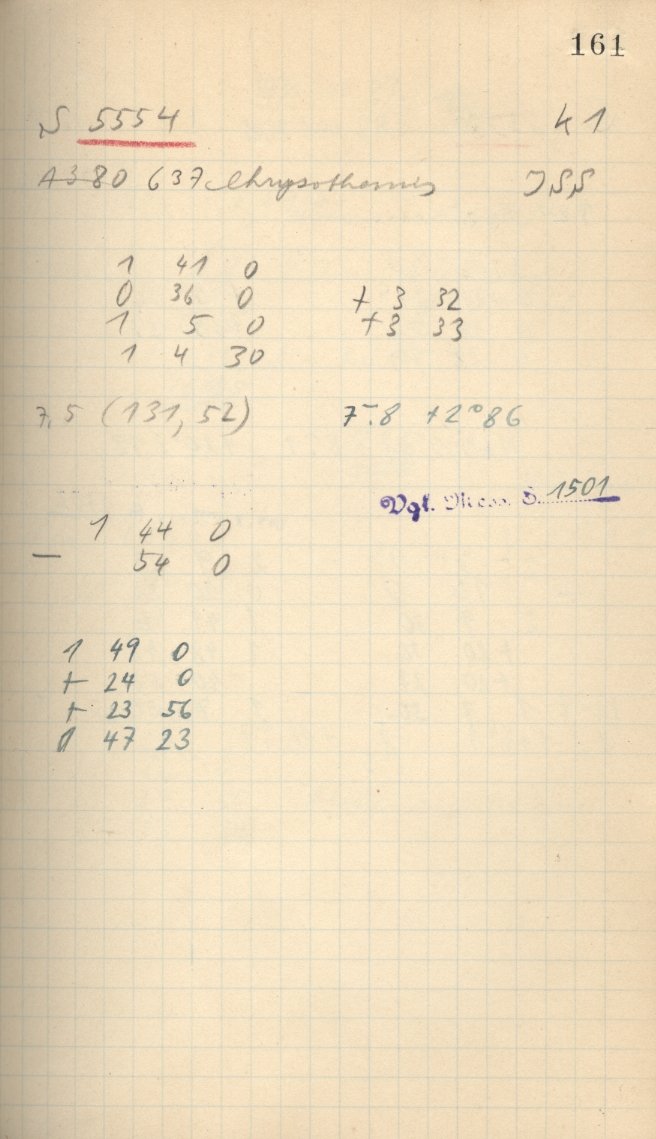 161
S 5554 K 1
A380 637 Chrysothemis JSS
1 41 0
0 36 0 + 3 32
1 5 0 +3 33
1 4 30
7,5 (131, 52) 7–.8 +2°86
Vgl. Mess. S. 1501
1 44 0
— 54 0
1 49 0
+ 24 0
+ 23 56
1 47 23